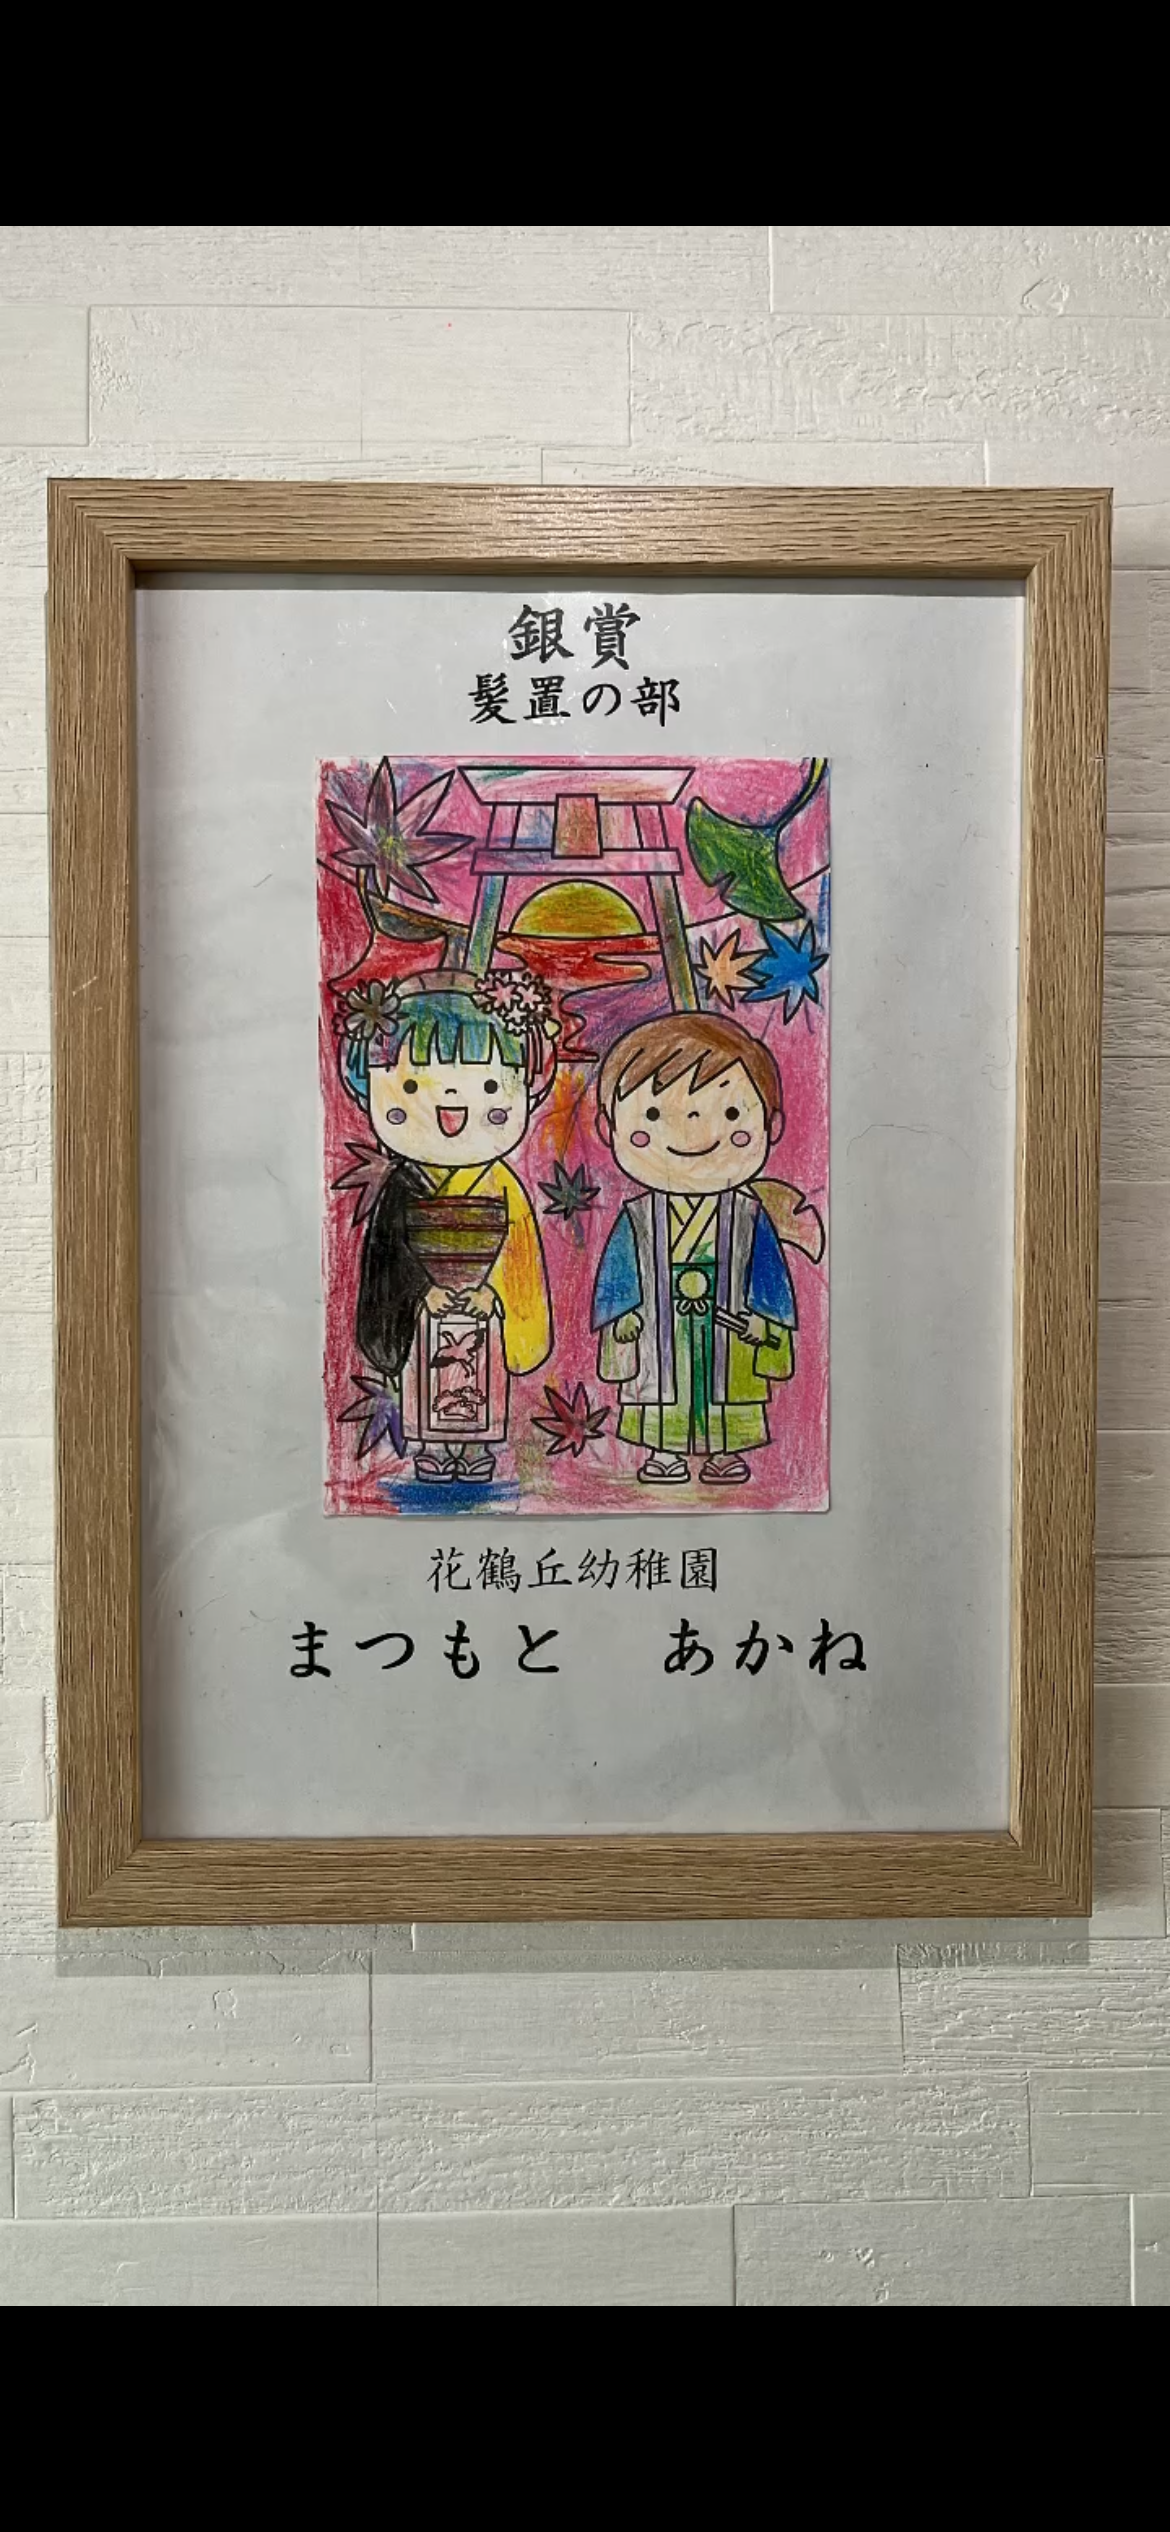 銀賞
髪置の部
花鶴丘幼稚園
まつもと　あかね